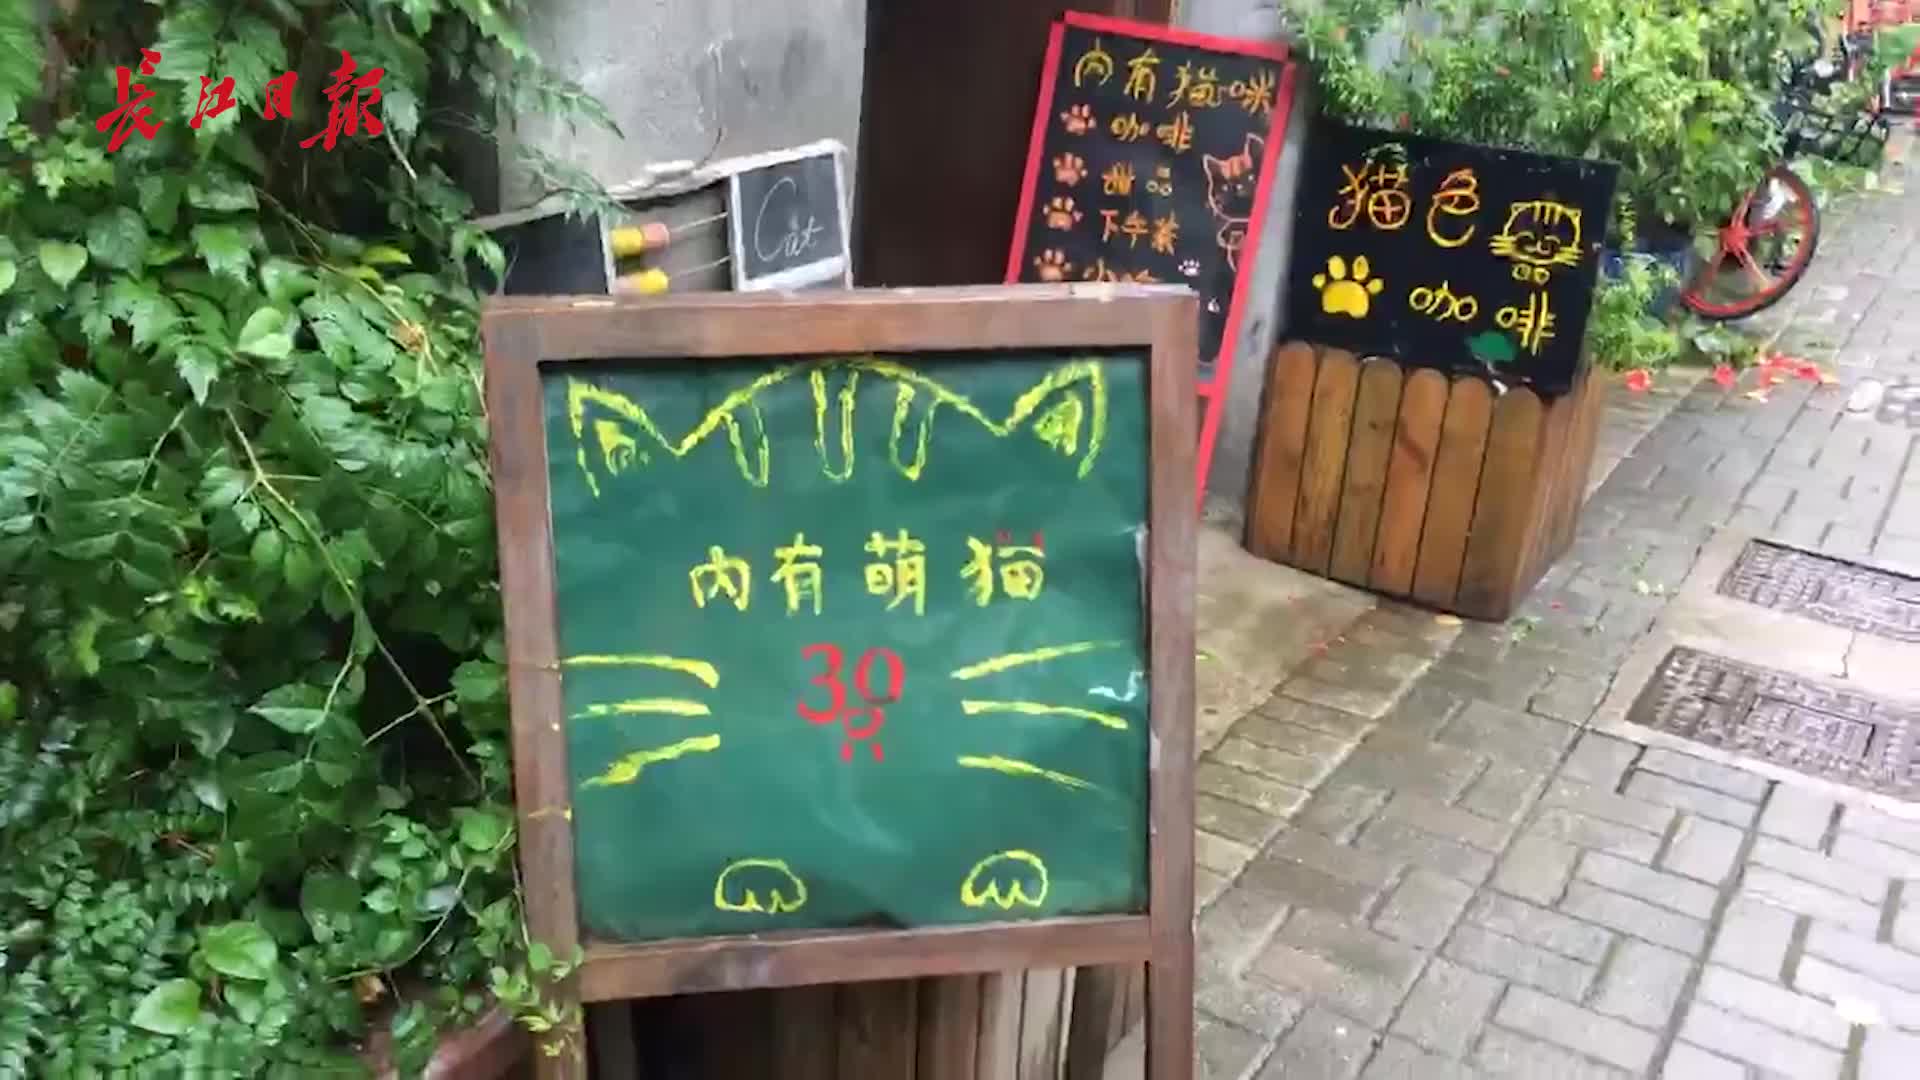 长江日報
Cat
内有猫咪
咖啡
甜品
下午茶
猫色
咖啡
内有萌猫
30
只